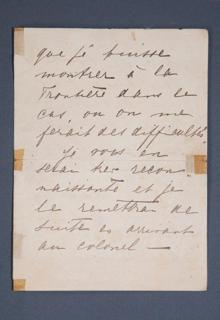 que je puisse
montrer à la
frontière dans le
cas, où on me
ferait des difficultés.
Je vous en
serai très recon-
naissante et je
le remettrai de
suite en arrivant
au colonel —